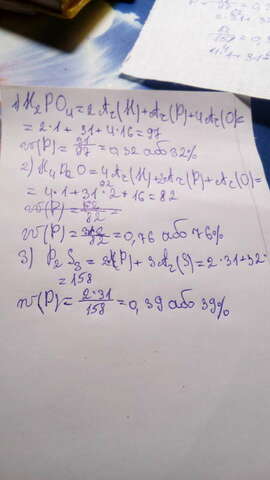 1) H₂PO₄ = 2Ar(H)+Ar(P)+4Ar(O)=
= 2·1+31+4·16=97
w(P)= 31/97 = 0,32 або 32%
2) H₄P₂O = 4Ar(H)+2Ar(P)+Ar(O)=
= 4·1+31·2+16=82
w(P)= 62/82 = 0,76 або 76%
3) P₂S₃ = 2Ar(P)+3Ar(S)=2·31+32·
= 158
w(P)= 2·31/158 = 0,39 або 39%